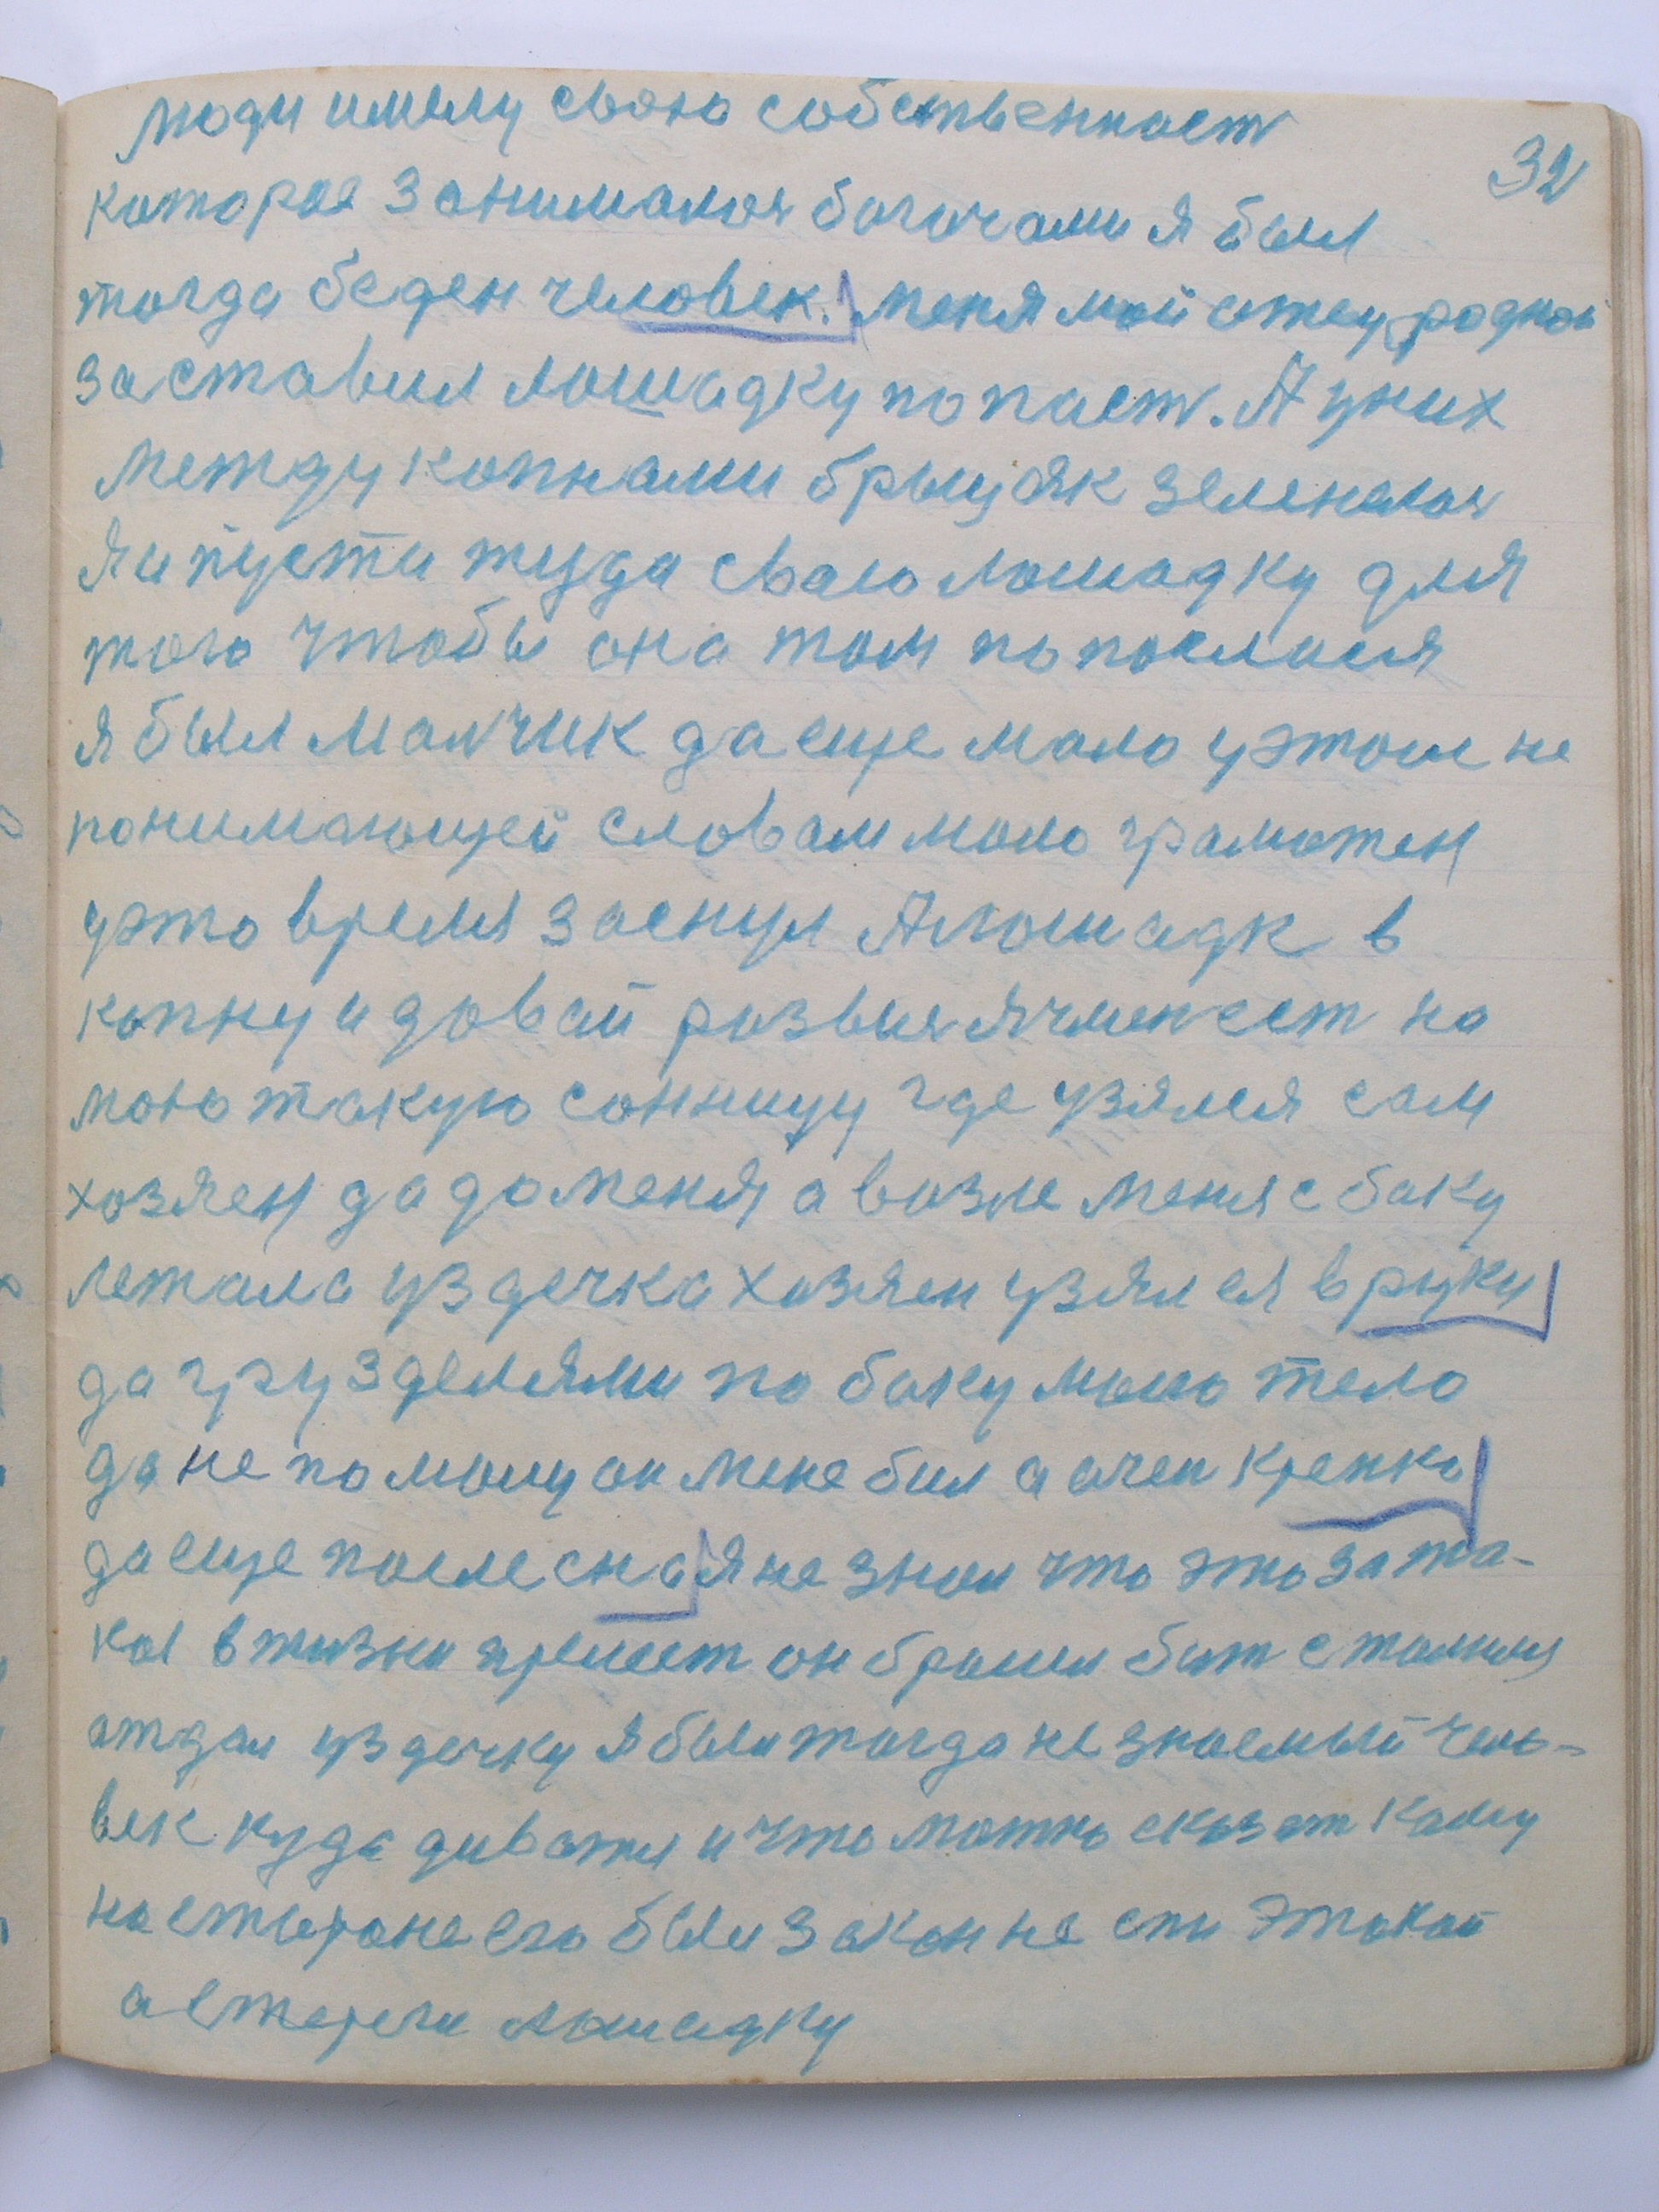 люди имелу свою собственност
32
каторая занималоя богочами я был
тогда беден человек. меня мой отец родной
заставил лошадку попаст. А у них
между копнами брыцяк зеленалоя
я и пусти туда сваю лошадку для
того чтобы она там попаслася
я был малчик да еще мало у этом не
понимающей словам мало граматен
у это время заснул А лошадк в
копну и давай развия ячмен ест на
мою такую сонницу где узялся сам
хозяен да до меня а возле меня с баку
лежала уздечка хозяен узял ея в руки
да гру зделями по баку маио тело
да не по маиу он мене бил а очен крепко
да еще после сна я не знал что это за та-
кая в жизни прелест он бросил бит столкия
отдал уздечку я был тогда не знаемый чело-
век куда диватия и что можно сказат каму
на стороне его был закон не спи этакой
а стереги лошадку